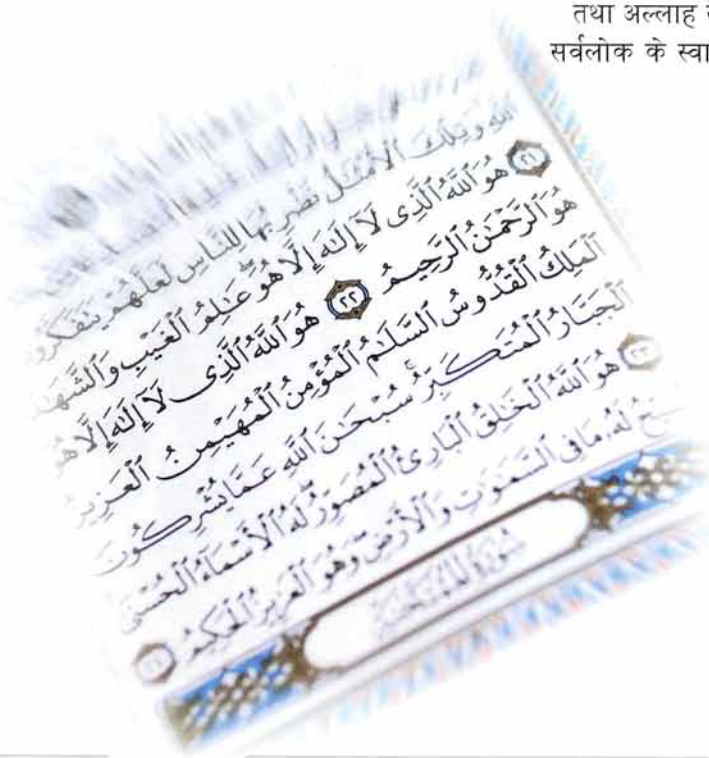 तथा अल्लाह
सर्वलोक के स्वा
ٱللَّهِ وَتِلْكَ ٱلْأَمْثَـٰلُ نَضْرِبُهَا لِلنَّاسِ لَعَلَّهُمْ يَتَفَكَّرُو
٢١ هُوَ ٱللَّهُ ٱلَّذِى لَآ إِلَـٰهَ إِلَّا هُوَ عَـٰلِمُ ٱلْغَيْبِ وَٱلشَّهَـٰدَ
هُوَ ٱلرَّحْمَـٰنُ ٱلرَّحِيمُ ٢٢ هُوَ ٱللَّهُ ٱلَّذِى لَآ إِلَـٰهَ إِلَّا هُوَ
ٱلْمَلِكُ ٱلْقُدُّوسُ ٱلسَّلَـٰمُ ٱلْمُؤْمِنُ ٱلْمُهَيْمِنُ ٱلْعَزِيزُ
ٱلْجَبَّارُ ٱلْمُتَكَبِّرُ سُبْحَـٰنَ ٱللَّهِ عَمَّا يُشْرِكُونَ
٢٣ هُوَ ٱللَّهُ ٱلْخَـٰلِقُ ٱلْبَارِئُ ٱلْمُصَوِّرُ لَهُ ٱلْأَسْمَآءُ ٱلْحُسْنَىٰ
سَبِّحُ لَهُۥ مَا فِى ٱلسَّمَـٰوَٰتِ وَٱلْأَرْضِ وَهُوَ ٱلْعَزِيزُ ٱلْحَكِيمُ ٢٤
سُورَةُ ٱلْمُمْتَحَنَةِ